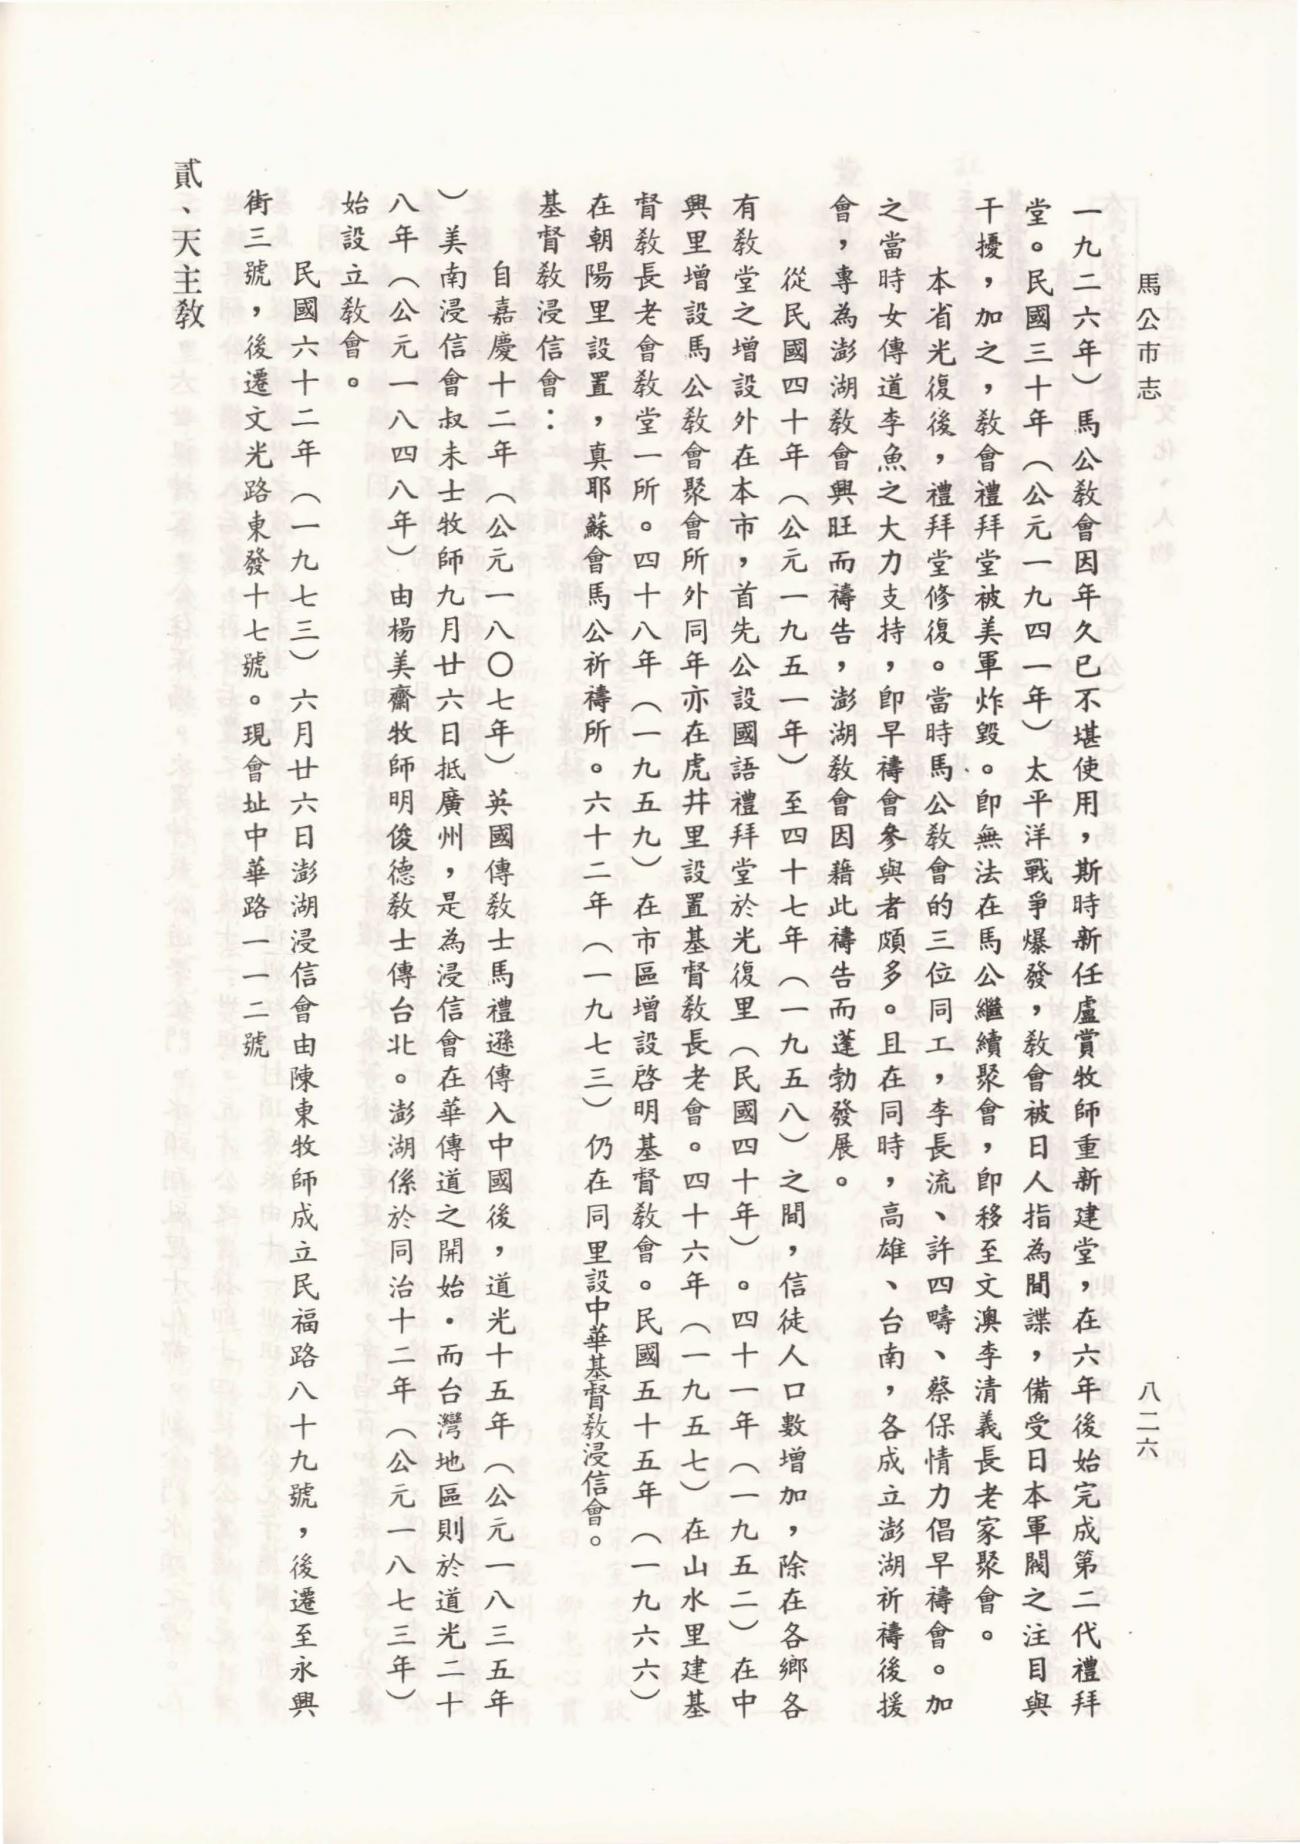 馬公市志
八二六
一九二六年）馬公敎會因年久已不堪使用，斯時新任盧賞牧師重新建堂，在六年後始完成第二代禮拜
堂。民國三十年（公元一九四一年）太平洋戰爭爆發，敎會被日人指為間諜，備受日本軍閥之注目與
干擾，加之，敎會禮拜堂被美軍炸毀。卽無法在馬公繼續聚會，卽移至文澳李清義長老家聚會。
本省光復後，禮拜堂修復。當時馬公敎會的三位同工，李長流、許四疇、蔡保情力倡早禱會。加
之當時女傳道李魚之大力支持，卽早禱會參與者頗多。且在同時，高雄、台南，各成立澎湖祈禱後援
會，專為澎湖敎會興旺而禱告，澎湖敎會因藉此禱告而蓬勃發展。
從民國四十年（公元一九五一年）至四十七年（一九五八）之間，信徒人口數增加，除在各鄉各
有敎堂之增設外在本市，首先公設國語禮拜堂於光復里（民國四十年）。四十一年（一九五二）在中
興里增設馬公敎會聚會所外同年亦在虎井里設置基督敎長老會。四十六年（一九五七）在山水里建基
督敎長老會敎堂一所。四十八年（一九五九）在市區增設啓明基督敎會。民國五十五年（一九六六）
在朝陽里設置，真耶蘇會馬公祈禱所。六十二年（一九七三）仍在同里設中華基督敎浸信會。
基督敎浸信會：
自嘉慶十二年（公元一八〇七年）英國傳敎士馬禮遜傳入中國後，道光十五年（公元一八三五年
）美南浸信會叔未士牧師九月廿六日抵廣州，是為浸信會在華傳道之開始．而台灣地區則於道光二十
八年（公元一八四八年）由楊美齋牧師明俊德敎士傳台北。澎湖係於同治十二年（公元一八七三年）
始設立敎會。
民國六十二年（一九七三）六月廿六日澎湖浸信會由陳東牧師成立民福路八十九號，後遷至永興
街三號，後遷文光路東發十七號。現會址中華路一一二號
貳、天主敎